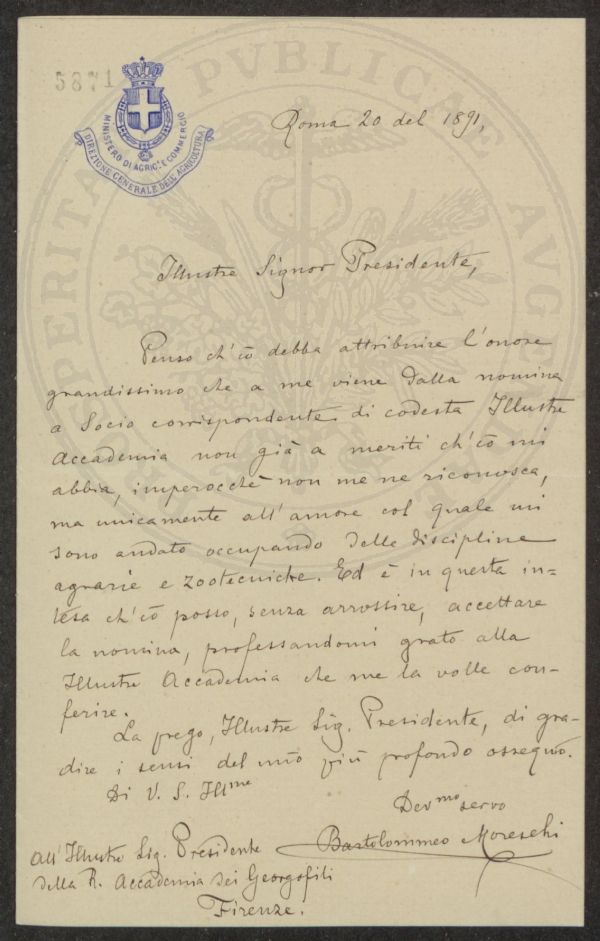 5871
MINISTERO DI AGRIC. E COMMERCIO
DIREZIONE GENERALE DELL'AGRICOLTURA
PVBLICAE
Roma 20 del 1891,
Illustre Signor Presidente,
Penso ch'io debba attribuire l'onore
grandissimo che a me viene dalla nomina
a Socio corrispondente di codesta Illustre
Accademia non già a meriti ch'io mi
abbia, imperocchè non me ne riconosca,
ma unicamente all'amore col quale mi
sono andato occupando delle discipline
agrarie e zootecniche. Ed è in questa in=
tesa ch'io posso, senza arrossire, accettare
la nomina, professandomi grato alla
Illustre Accademia che me la volle con-
ferire.
La prego, Illustre Sig. Presidente, di gra-
dire i sensi del mio più profondo ossequio.
Di V. S. Ill.me
Dev.mo servo
Bartolommeo Moreschi
All'Illustre Sig. Presidente
della R. Accademia dei Georgofili
Firenze.